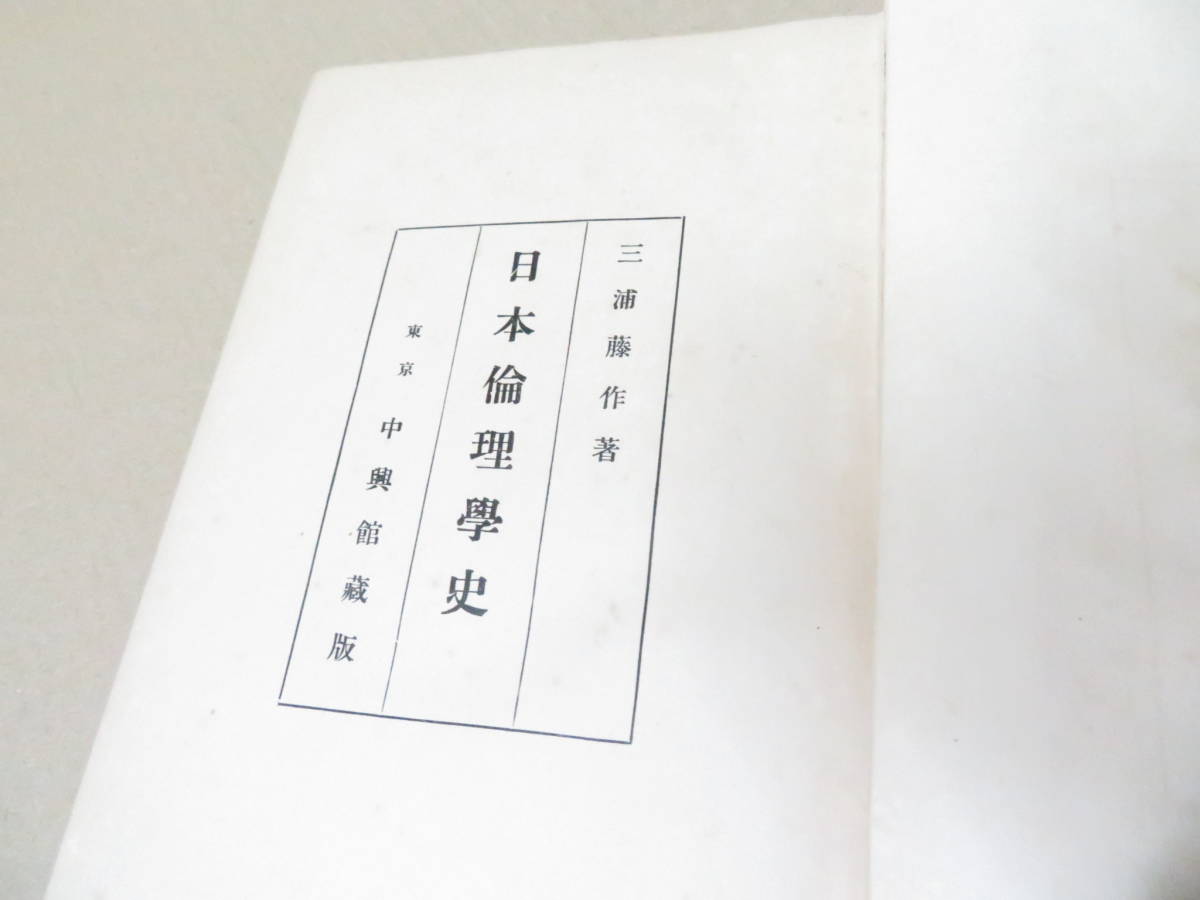 三浦藤作著
日本倫理學史
東京 中興館藏版